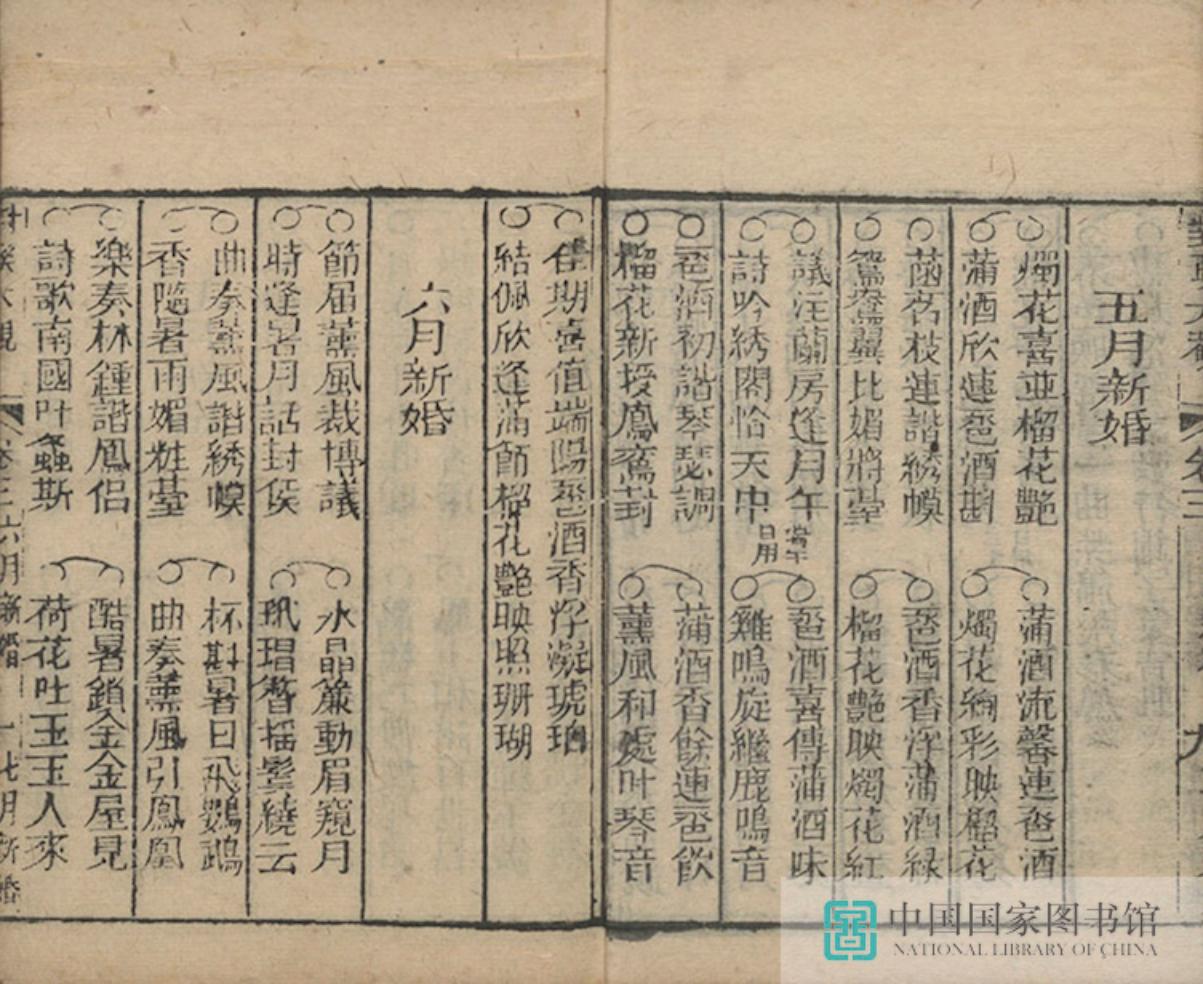 五月新婚
燭花喜並榴花艷
蒲酒流馨連卺酒
蒲酒欣連卺酒斟
燭花絢彩映榴花
菡名枝連諧綉幙
卺酒香浮蒲酒綠
鴛鴦翼比媚粧臺
榴花艷映燭花紅
議注蘭房逢月午
當午日用
卺酒喜傳蒲酒味
詩吟綉閣恰天中
雞鳴旋繼鹿鳴音
卺酒初諧琴瑟調
蒲酒香餘連卺飲
榴花新授鳳鸞封
薰風和處叶琴音
佳期喜值端陽卺酒香浮凝琥珀
結佩欣逢蒲節榴花艷映照珊瑚
六月新婚
節届薰風裁博議
水晶簾動眉窺月
時逢暑月話封侯
玳瑁簪搖鬢繞云
曲奏薰風諧綉幙
杯斟暑日飛鸚鵡
香隨暑雨媚粧臺
曲奏薰風引鳳凰
樂奏林鍾諧鳳侶
酷暑鎖金金屋見
詩歌南國叶螽斯
荷花吐玉玉人來
卷三 六月新婚 七月新婚
中国国家图书馆
NATIONAL LIBRARY OF CHINA